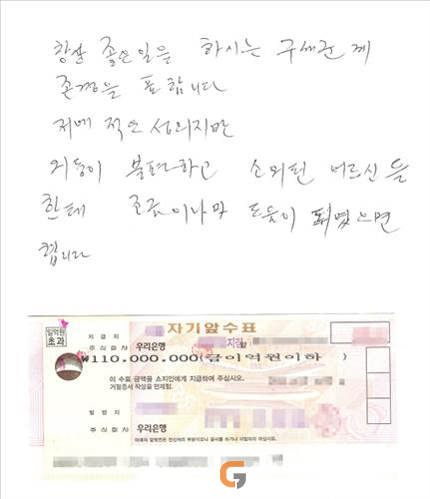 항상 좋은일을 하시는 구세군께
존경을 표합니다
저에 적은 성의지만
외동이 불편하고 소외된 어르신들
한테 조금이나마 도움이 되였으면
합니다
일억원
초과
자기앞수표
지급지
주식회사 우리은행 지점
₩110,000,000(금이억원이하 )
이 수표 금액을 소지인에게 지급하여 주십시오.
거절증서 작성을 면제함.
발행지
주식회사 우리은행